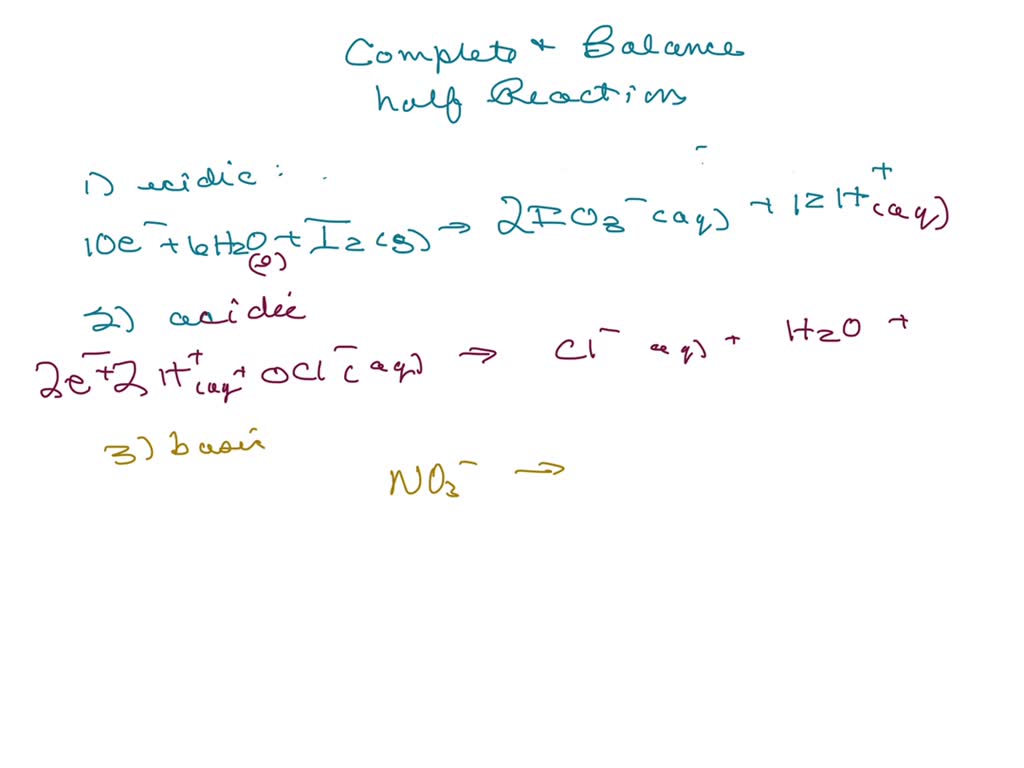 Complete + Balance
half Reactions
1) acidic :
10e⁻ + 6H₂O + I₂ (s) → 2IO₃⁻ (aq) + 12H⁺ (aq)
(l)
2) acidic
2e⁻ + 2H⁺ (aq) + OCl⁻ (aq) → Cl⁻ aq) + H₂O +
3) basic
NO₃⁻ →